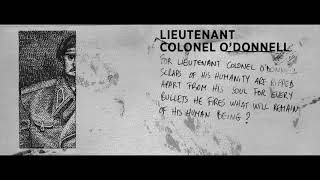 LIEUTENANT
COLONEL O'DONNELL
FOR LIEUTENANT COLONEL O'DONNELL
SCRAPS OF HIS HUMANITY ARE RIPPED
APART FROM HIS SOUL FOR EVERY
BULLETS HE FIRES WHAT WILL REMAIN
OF HIS HUMAN BEING?